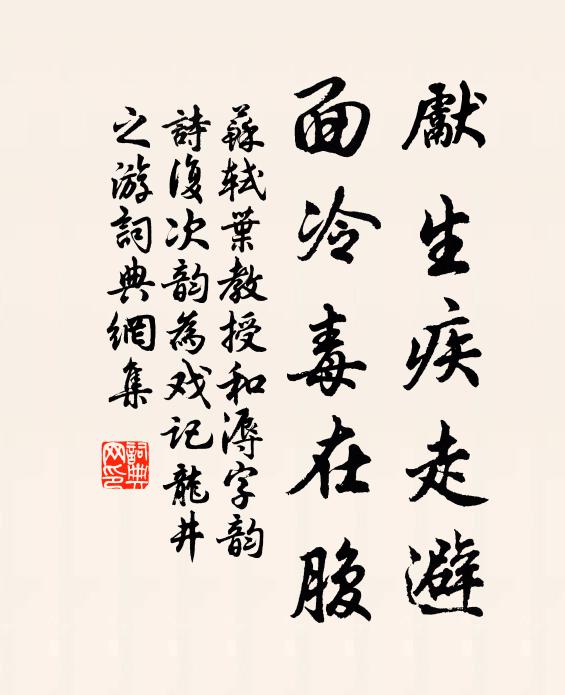 獻生疾走避
面冷毒在腹
蘇軾葉教授和溽字韵
詩復次韵為戏记龍井
之游詞典網集
詞典网印